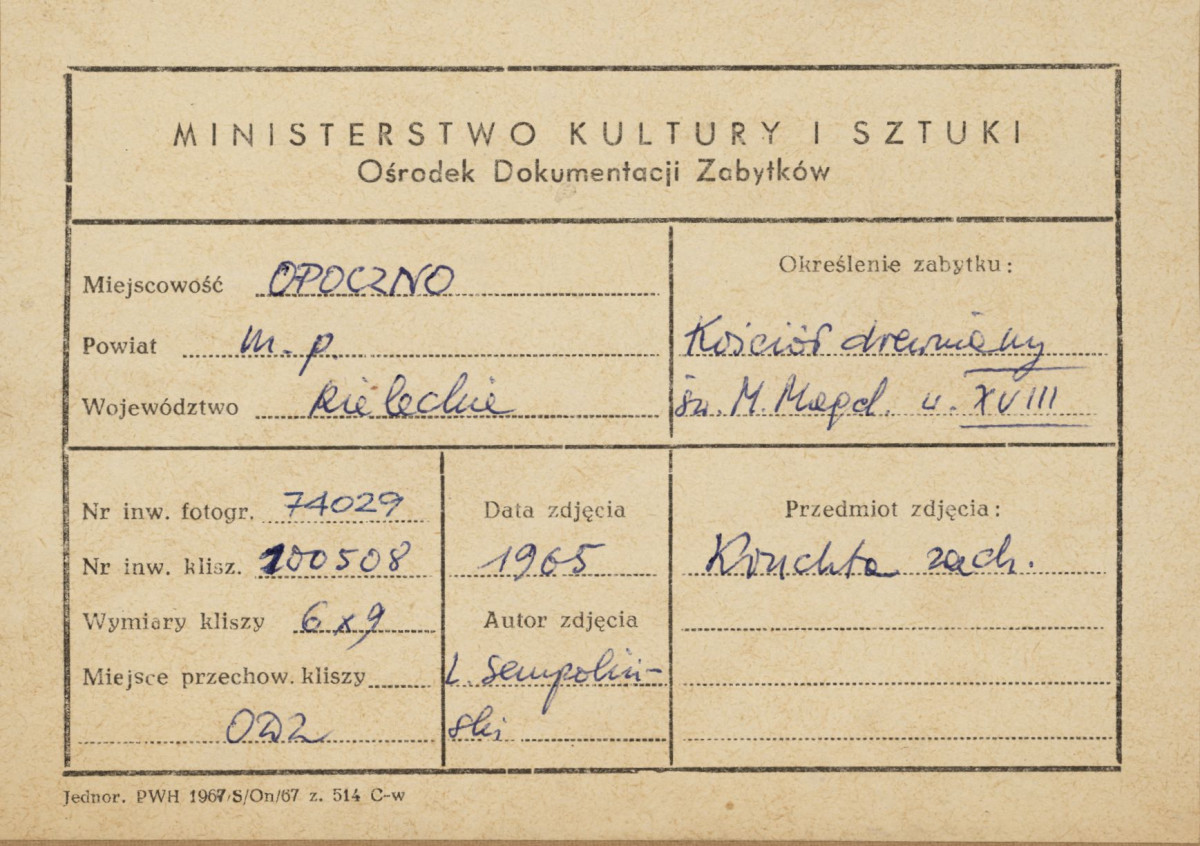 MINISTERSTWO KULTURY I SZTUKI
Ośrodek Dokumentacji Zabytków
Miejscowość OPOCZNO
Powiat m. p.
Województwo kieleckie
Określenie zabytku:
Kościół drewniany
św. M. Magd. w. XVIII
Nr inw. fotogr. 74029
Nr inw. klisz. 100508
Wymiary kliszy 6x9
Miejsce przechow. kliszy
ODZ
Data zdjęcia
1965
Autor zdjęcia
Ł. Sempoliń-
ski
Przedmiot zdjęcia:
Kruchta zach.
Jednor. PWH 1967 S/On/67 z. 514 C-w